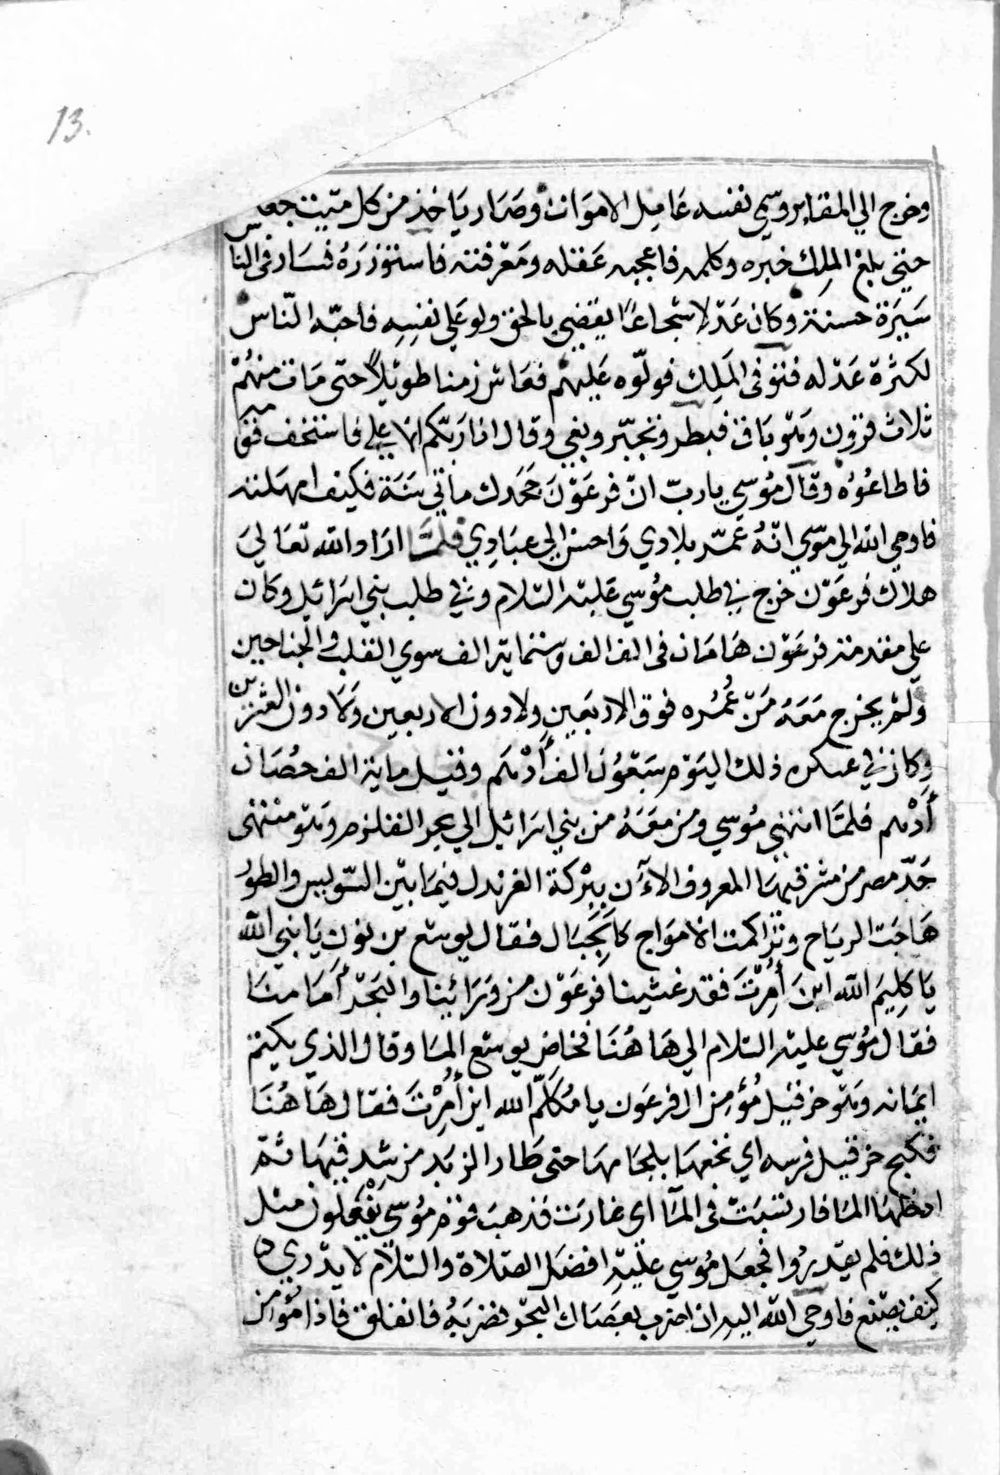 13.
وخرج الي المقابر وسمي نفسه عامل الاموات وصار ياخذ من كل ميت جعلا
حتي بلغ الملك خبره وكلمه فاعجبه عقله ومعرفته فاستوزره فسار في الناس
سيرة حسنة وكان عدلا شجاعا يقضي بالحق ولو علي نفسه فاحبه الناس
لكثرة عدله فتوفي الملك فولوه عليهم فعاش زمنا طويلا حتي مات منهم
ثلاث قرون وهو باق فبطر وتجبر وبغي وقال انا ربكم الاعلي فاستخف قومه
فاطاعوه وقال موسي يارب ان فرعون جحدك مائتي سنة فكيف امهلته
فاوحي الله الي موسي انه عمر بلادي واحسن الي عبادي فلما اراد الله تعالي
هلاك فرعون خرج في طلب موسي عليه السلام وفي طلب بني اسرائيل وكان
علي مقدمة فرعون هامان في الف الف وستماية الف سوي القلب والجناحين
ولم يخرج معه من عمره فوق الاربعين ولا دون الاربعين ولا دون العشرين
وكان في عسكره ذلك اليوم سبعون الف أدهم وقيل ماية الف حصان
أدهم فلما انتهي موسي ومن معه من بني اسرائيل الي بحر القلزم وهو منتهي
حد مصر من شرقيها المعروف الآن ببركة الغرندل فيما بين السويس والطور
هاجت الرياح وتراكمت الامواج كالجبال فقال يوشع بن نون يا نبي الله
يا كليم الله اين أمرت فقد غشينا فرعون من ورائنا والبحر أمامنا
فقال موسي عليه السلام الي ها هنا فخاض يوشع الما وقال الذي يكتم
ايمانه وهو حزقيل مؤمن ال فرعون يا مكلم الله اين أمرت فقال ها هنا
فكبح حزقيل فرسه اي نخعها بلجامها حتي طار الزبد من شدقيها ثم
ادخلها الما فارتسبت في المآ اي غارت فذهب قوم موسي يفعلون مثل
ذلك فلم يقدروا فجعل موسي عليه افضل الصلاة والسلام لا يدري
كيف يصنع فاوحي الله اليه ان اضرب بعصاك البحر فضربه فانفلق فاذا مؤمن